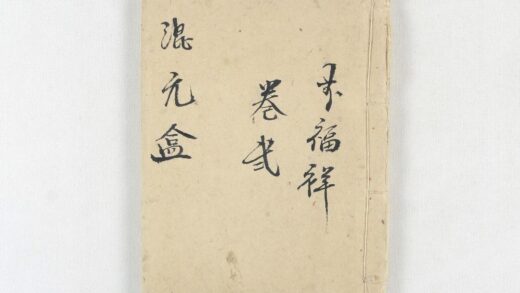 福祥
卷弍
混元盒